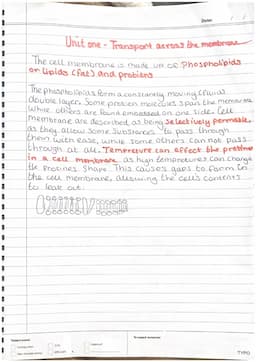 Date:
Unit one - Transport across the membrane
The cell membrane is made up of Phospholipids
or lipids (fat) and protiens
The phospholipids form a constantly moving (fluid)
double layer. Some protien molecules span the membrane
while others are found embedded on one side. Cell
membrane are described as being selectively permeable,
as they allow some substances to pass through
them with ease, while some others can not pass
through at all. Tempreture can effect the protiens
in a cell membrane, as high tempretures can change
the protines shape. This causes gaps to form in
the cell membrane, allowing the cells contents
to leak out.
TYPO